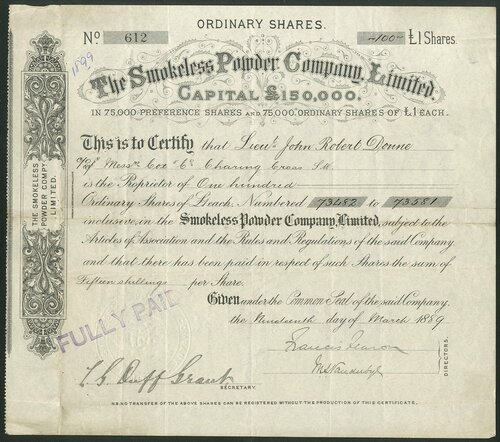 ORDINARY SHARES.
No 612
~100~ £1 Shares.
1899
The Smokeless Powder Company, Limited.
CAPITAL £150,000.
IN 75,000 PREFERENCE SHARES AND 75,000 ORDINARY SHARES OF £1 EACH.
This is to Certify that Lieut. John Robert Donne
of Messrs Cox & Co Charing Cross S.W.
is the Proprietor of One hundred
Ordinary Shares of £1 each, Numbered 73482 to 73581
inclusive, in the Smokeless Powder Company, Limited, subject to the
Articles of Association and the Rules and Regulations of the said Company
and that there has been paid in respect of such Shares the sum of
Fifteen shillings per Share.
Given under the Common Seal of the said Company,
the Nineteenth day of March 1889
FULLY PAID
Francis Fearon
DIRECTORS.
L G Duff Grant
SECRETARY.
N.B. NO TRANSFER OF THE ABOVE SHARES CAN BE REGISTERED WITHOUT THE PRODUCTION OF THIS CERTIFICATE.
THE SMOKELESS
POWDER COMPY
LIMITED.